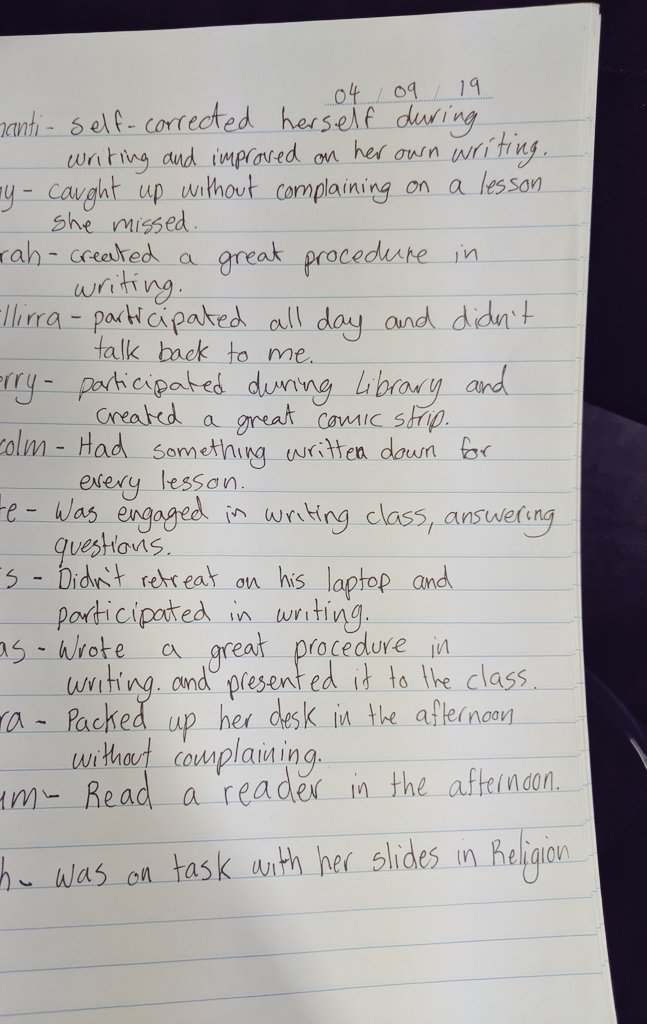 04 / 09 / 19
nanti- self-corrected herself during
writing and improved on her own writing.
y - caught up without complaining on a lesson
she missed.
rah - created a great procedure in
writing.
llirra - participated all day and didn't
talk back to me.
erry - participated during Library and
created a great comic strip.
colm - Had something written down for
every lesson.
te - Was engaged in writing class, answering
questions.
s - Didn't retreat on his laptop and
participated in writing.
as - Wrote a great procedure in
writing. and presented it to the class.
ra - Packed up her desk in the afternoon
without complaining.
um - Read a reader in the afternoon.
h - was on task with her slides in Religion